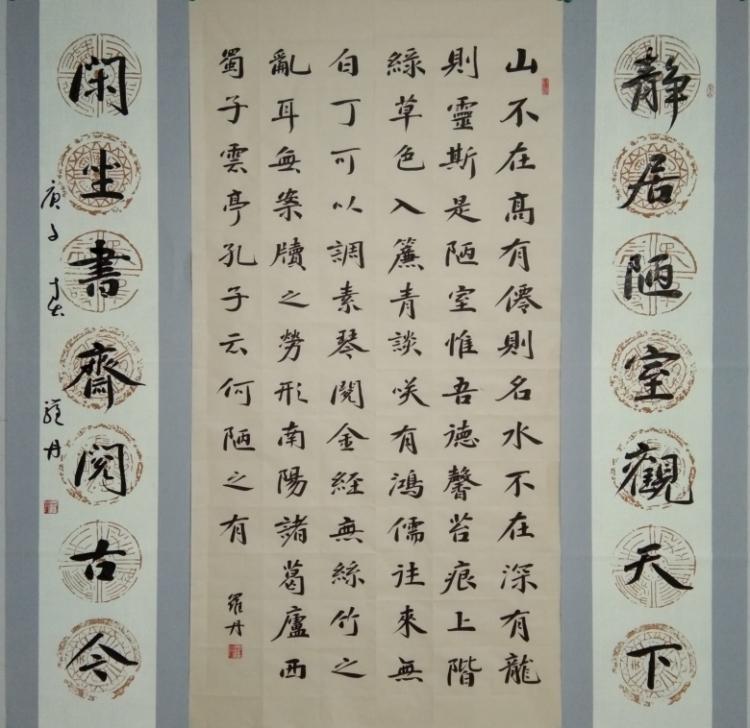 靜居陋室觀天下
山不在髙有僊則名水不在深有龍
則靈斯是陋室惟吾德馨苔痕上階
綠草色入簾青談咲有鴻儒往來無
白丁可以調素琴閱金經無絲竹之
亂耳無案牘之勞形南陽諸葛廬西
蜀子雲亭孔子云何陋之有
羅丹
閑坐書齋閱古今
庚子 羅丹